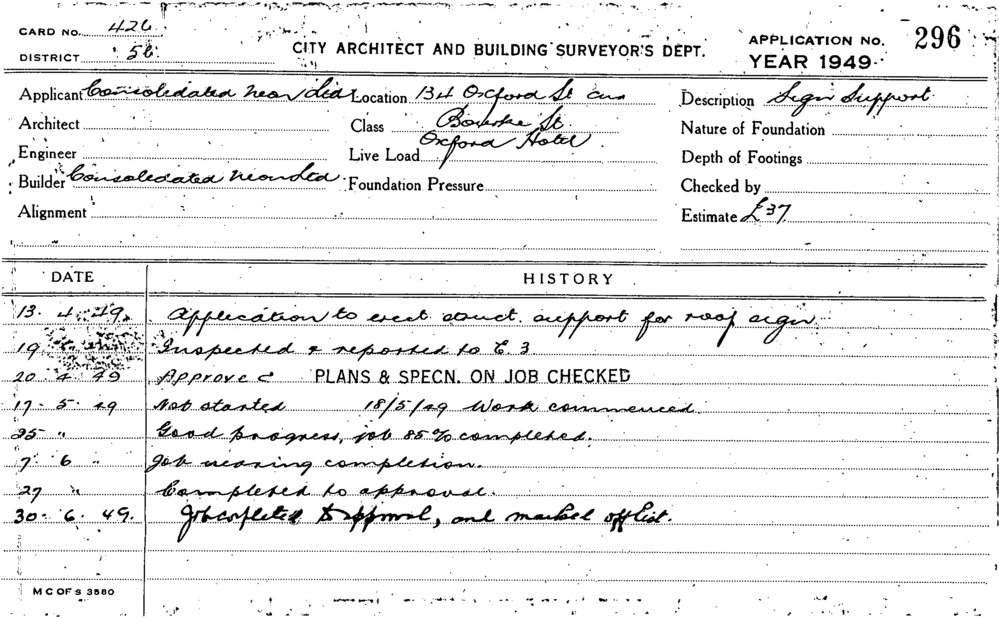 CARD NO. 426
DISTRICT 56
CITY ARCHITECT AND BUILDING SURVEYOR'S DEPT.
APPLICATION NO. 296
YEAR 1949
Applicant Consolidated Neon Ltd Location 134 Oxford St cnr Description Sign Support
Architect Class Bourke St Nature of Foundation
Engineer Live Load Oxford Hotel Depth of Footings
Builder Consolidated Neon Ltd Foundation Pressure Checked by
Alignment Estimate £37
DATE HISTORY
13. 4. 49. Application to erect struct. support for roof sign
19 Inspected & reported to E. 3
20 4 49 Approved PLANS & SPECN. ON JOB CHECKED
17. 5. 49 Not started 18/5/49 Work commenced.
25 " Good progress, job 85% completed.
7. 6 " Job nearing completion.
27 " Completed to approval.
30. 6. 49. Job completed to approval, and marked off list.
M C OF S 3580